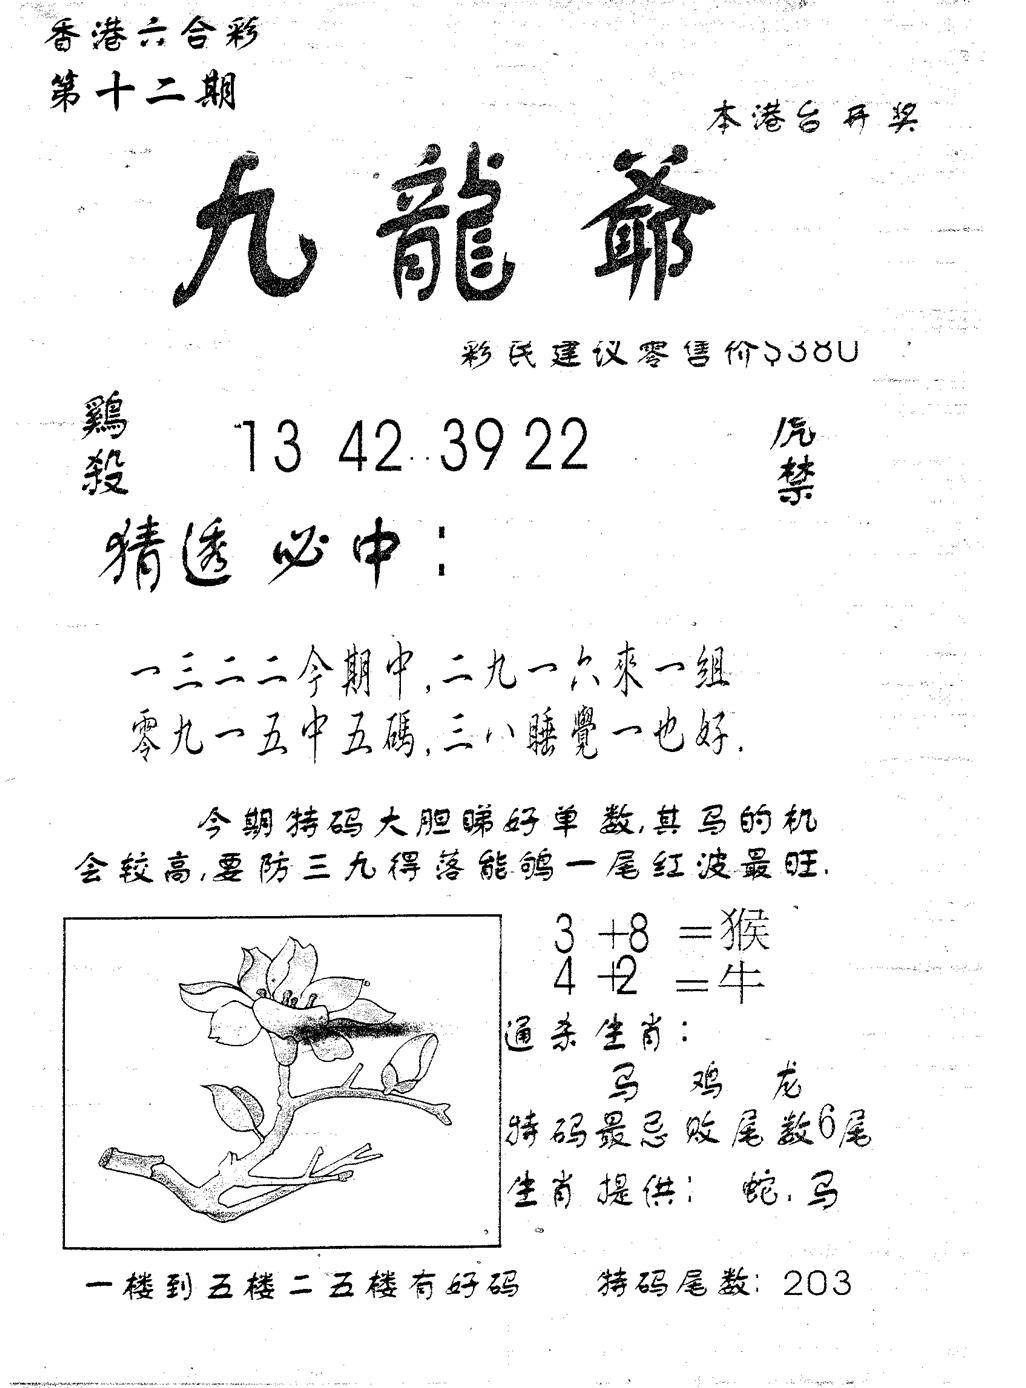 香港六合彩
第十二期
本港台开奖
九龍爺
彩民建议零售价$380
鷄殺
13 42 39 22
虎禁
猜透必中:
一三二二今期中,二九一六來一組
零九一五中五碼,三八睡覺一也好.
今期特码大胆睇好单数,其马的机
会较高,要防三九得落能鸲一尾红波最旺.
3+8=猴
4+2=牛
通杀生肖:
马 鸡 龙
特码最忌败尾数6尾
生肖提供: 蛇.马
一楼到五楼二五楼有好码
特码尾数: 203